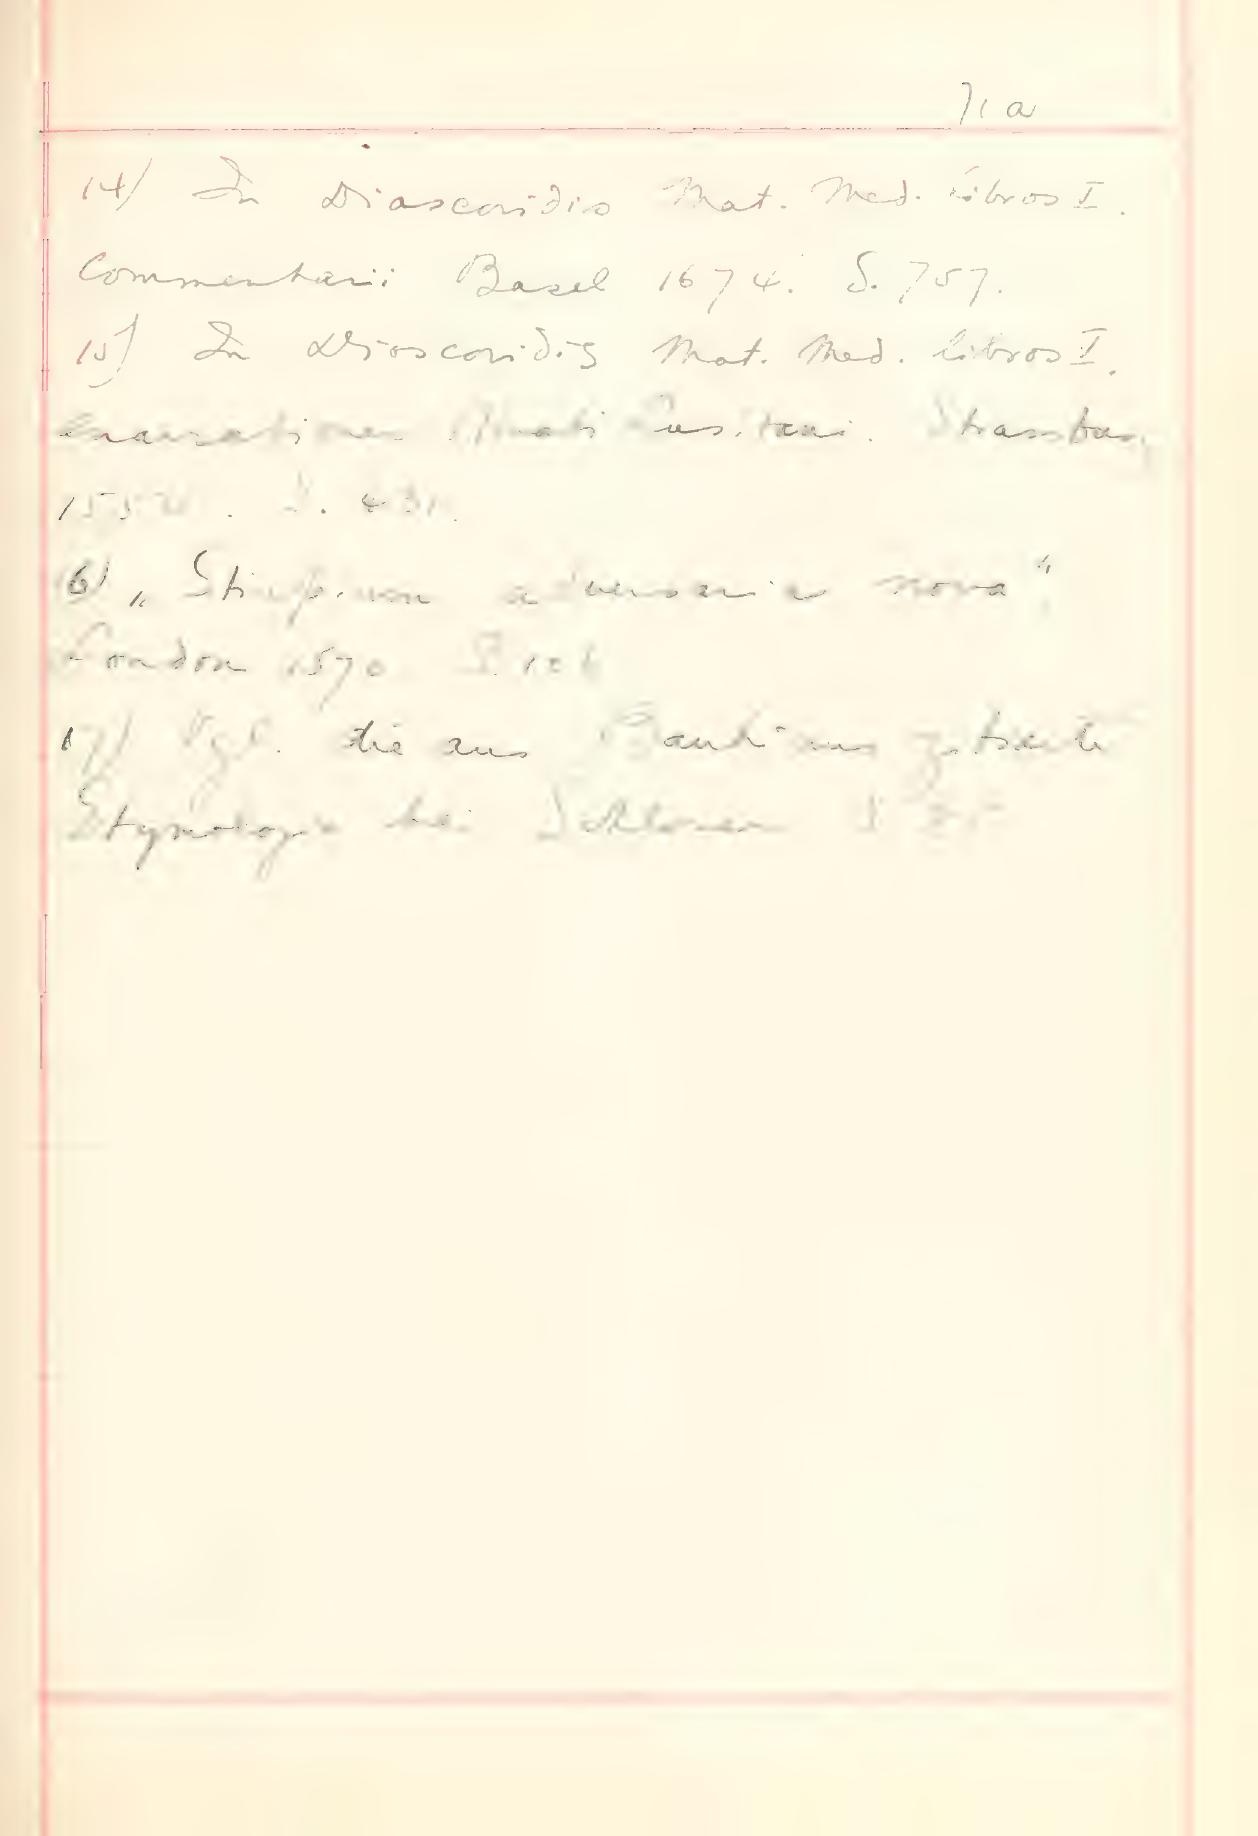 71 a
14) In Diascoridis Mat. Med. libros I.
Commentarii Basel 1674. S. 757.
15) In Dioscoridis Mat. Med. libros I.
enarrationes Amati Lusitani. Strassburg
155 . S. 431.
16) „Stirpium adversaria nova",
London 1570 S. 106
17) Vgl. die aus Bauhinus zitierte
Etymologie bei S